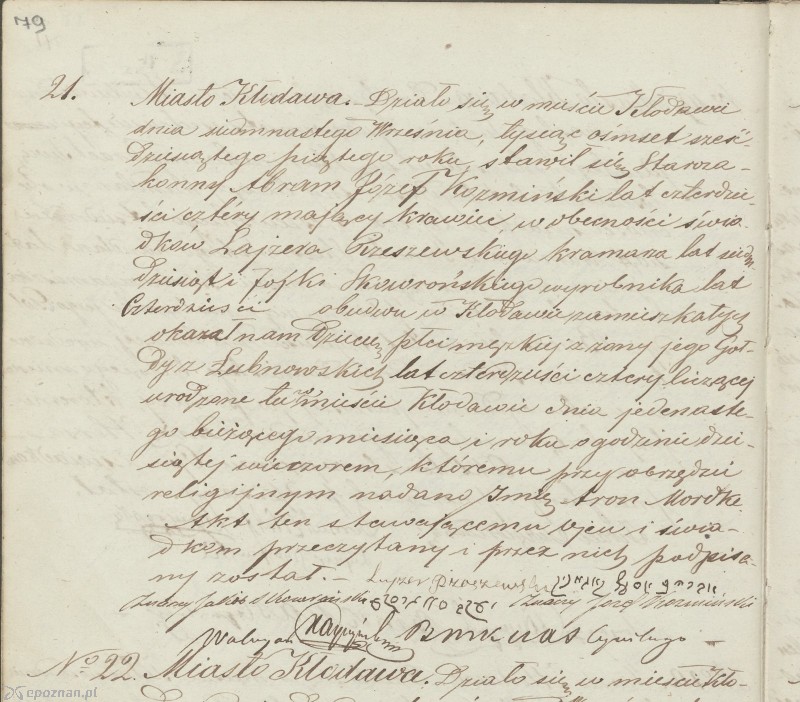 79
21. Miasto Kłodawa. Działo się w mieście Kłodawie
dnia siedmnastego Września, tysiąc ośmset sześć-
dziesiątego piątego roku, stawił się Starza-
konny Abram Józef Koźmiński lat czterdzie-
ści cztéry mający krawiec, w obecności świa-
dków Lajzera Przeszewskiego kramarza lat siedm-
dziesiąt i Joska Skowrońskiego wyrobnika lat
Czterdzieści obudwu w Kłodawie zamieszkałych
okazał nam dziecię płci męzkiej z żony jego Gol-
dy z Lubnowskich lat czterdzieści cztery liczącej
urodzone tu w mieście Kłodawie dnia jedenaste-
go bieżącego miesiąca i roku o godzinie dzie-
siątej wieczorem, któremu przy obrzędzie
religijnym nadano Imię Aron Mordka
Akt ten stawającemu ojcu i świa-
dkom przeczytany i przez nich podpisa-
ny został. -
Koźmiński
Cywilnego
No 22. Miasto Kłodawa. Działo się w mieście Kło-
epoznan.pl